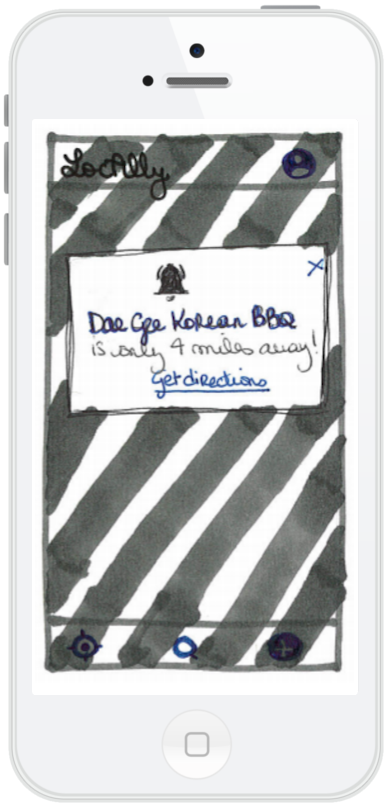 LocAlly
Dae Gee Korean BBQ
is only 4 miles away!
Get directions